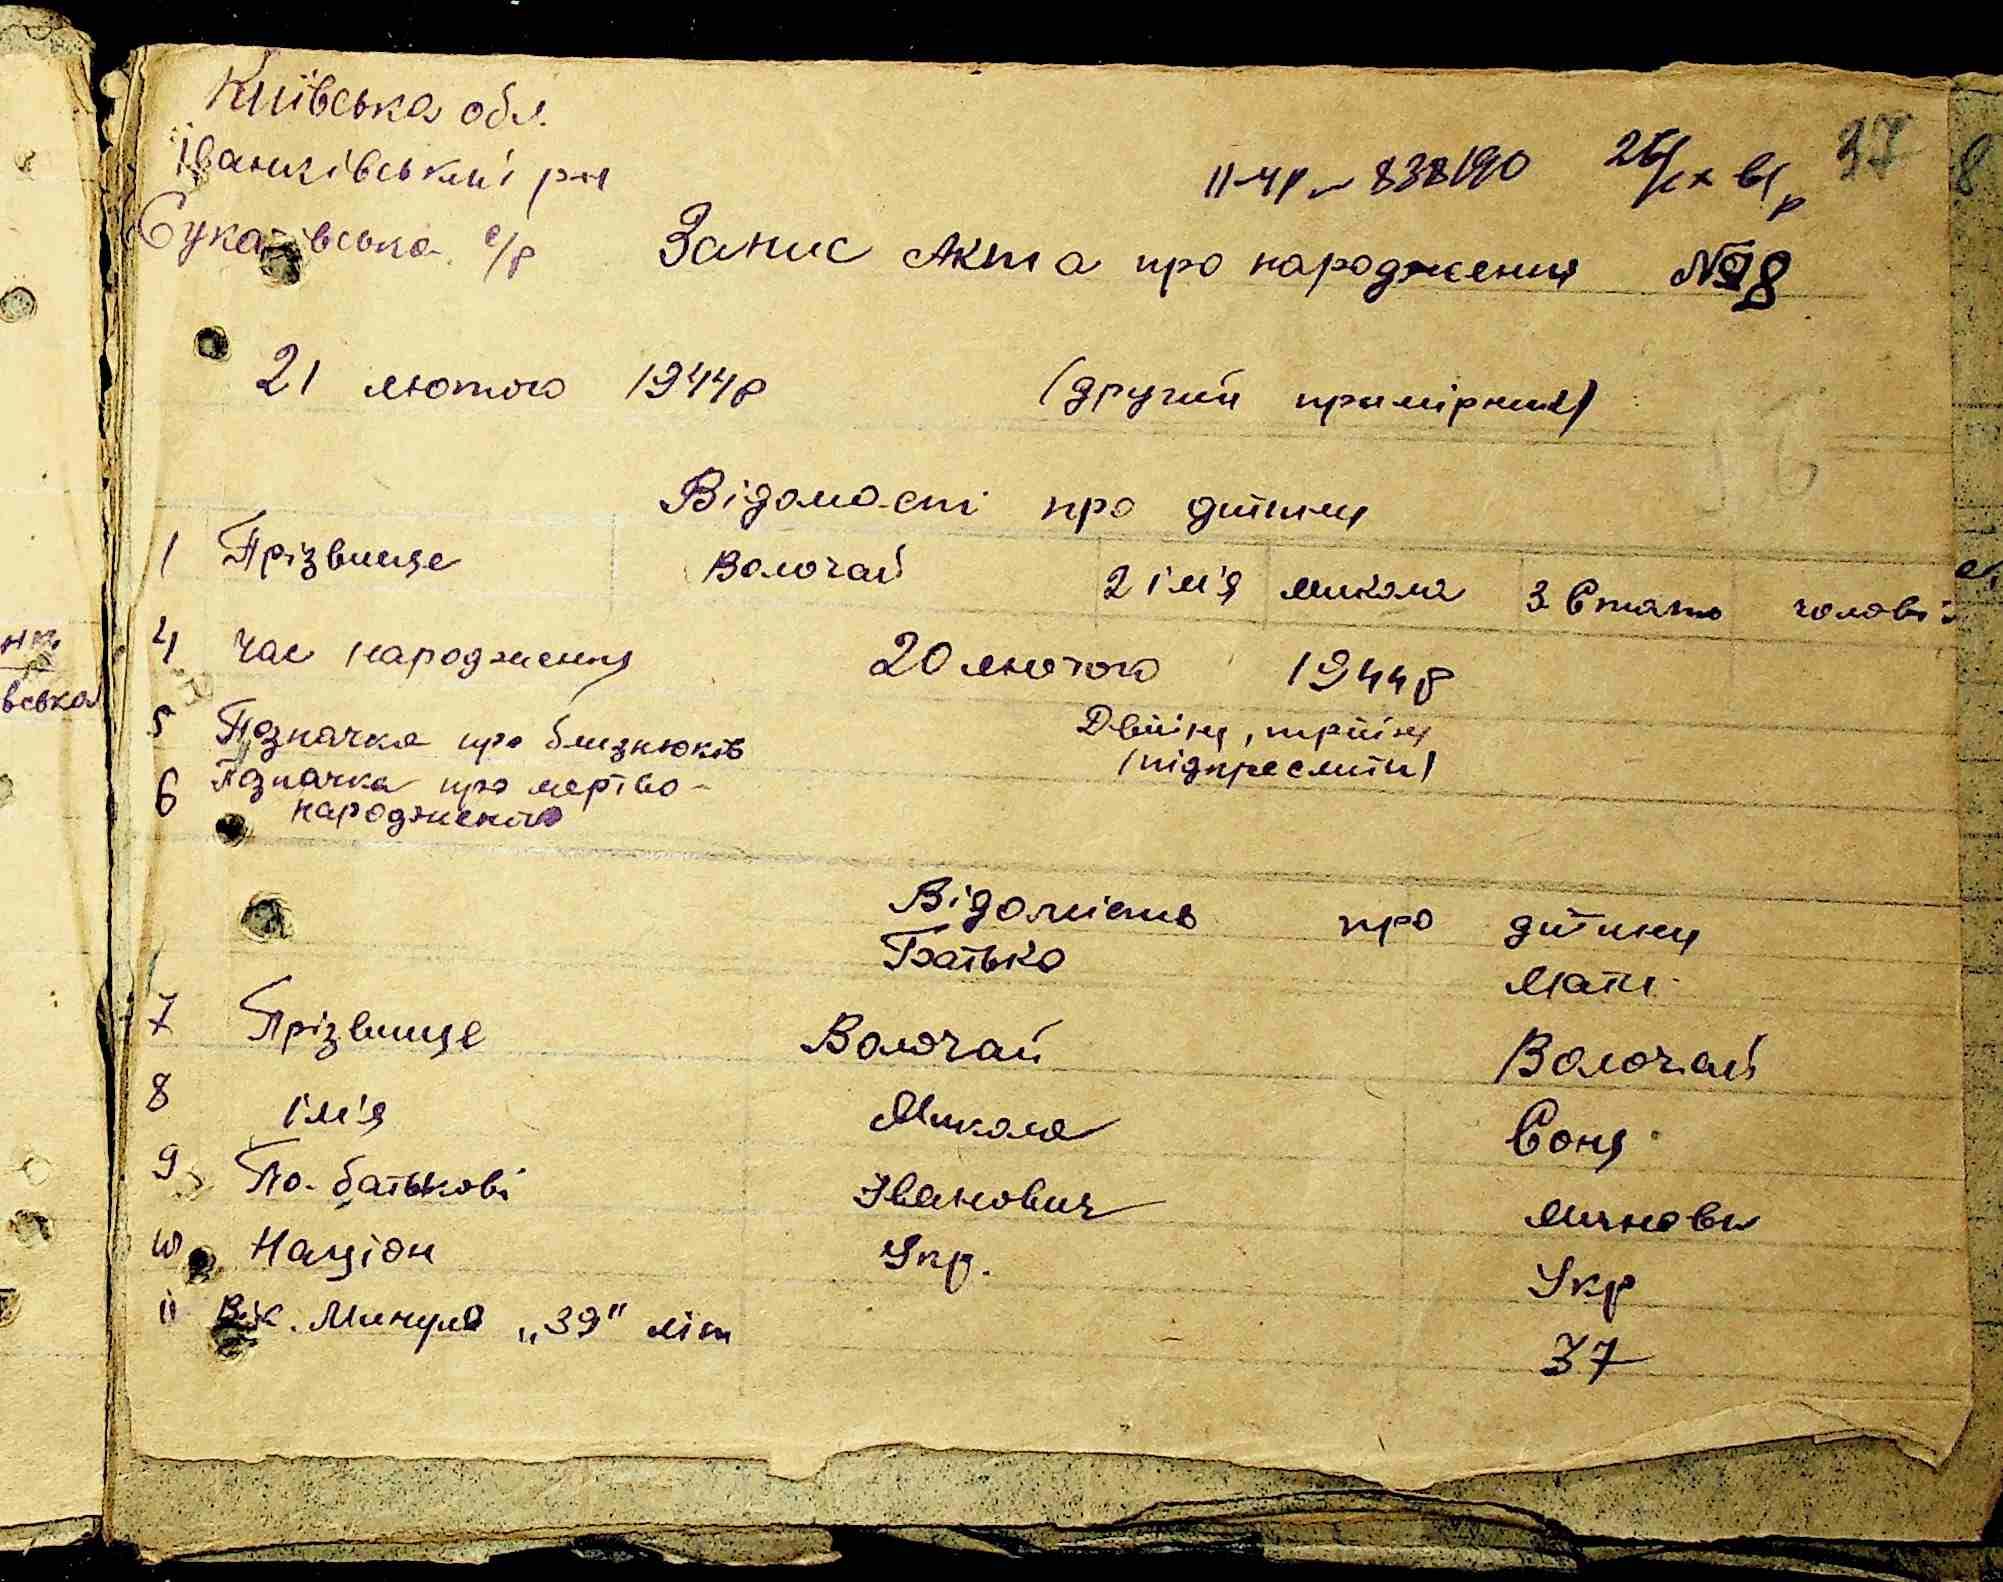 Київська обл.
Іванківський р-н
Сукачівська с/р
ІІ-ЧР № 838190
37
8
Запис Акта про народження №8
21 лютого 1944р (другий примірник)
Відомості про дитину
1 Прізвище Волочай 2 ім'я микола 3 Стать чолові
4 час народження 20 лютого 1944р
5 Позначка про близнюків Двійну, трійну
(підкреслити)
6 Позначка про мертво-
народження
Відомість про дитину
Батько Мати
7 Прізвище Волочай Волочай
8 ім'я Микола Соня
9 По-батькові Іванович
10 Націон Укр. Укр
11 Вік. Минуло „39" літ 37
вська